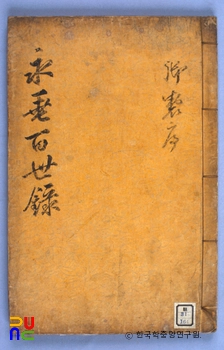 御製序
永垂百世錄
ⓒ 한국학중앙연구원